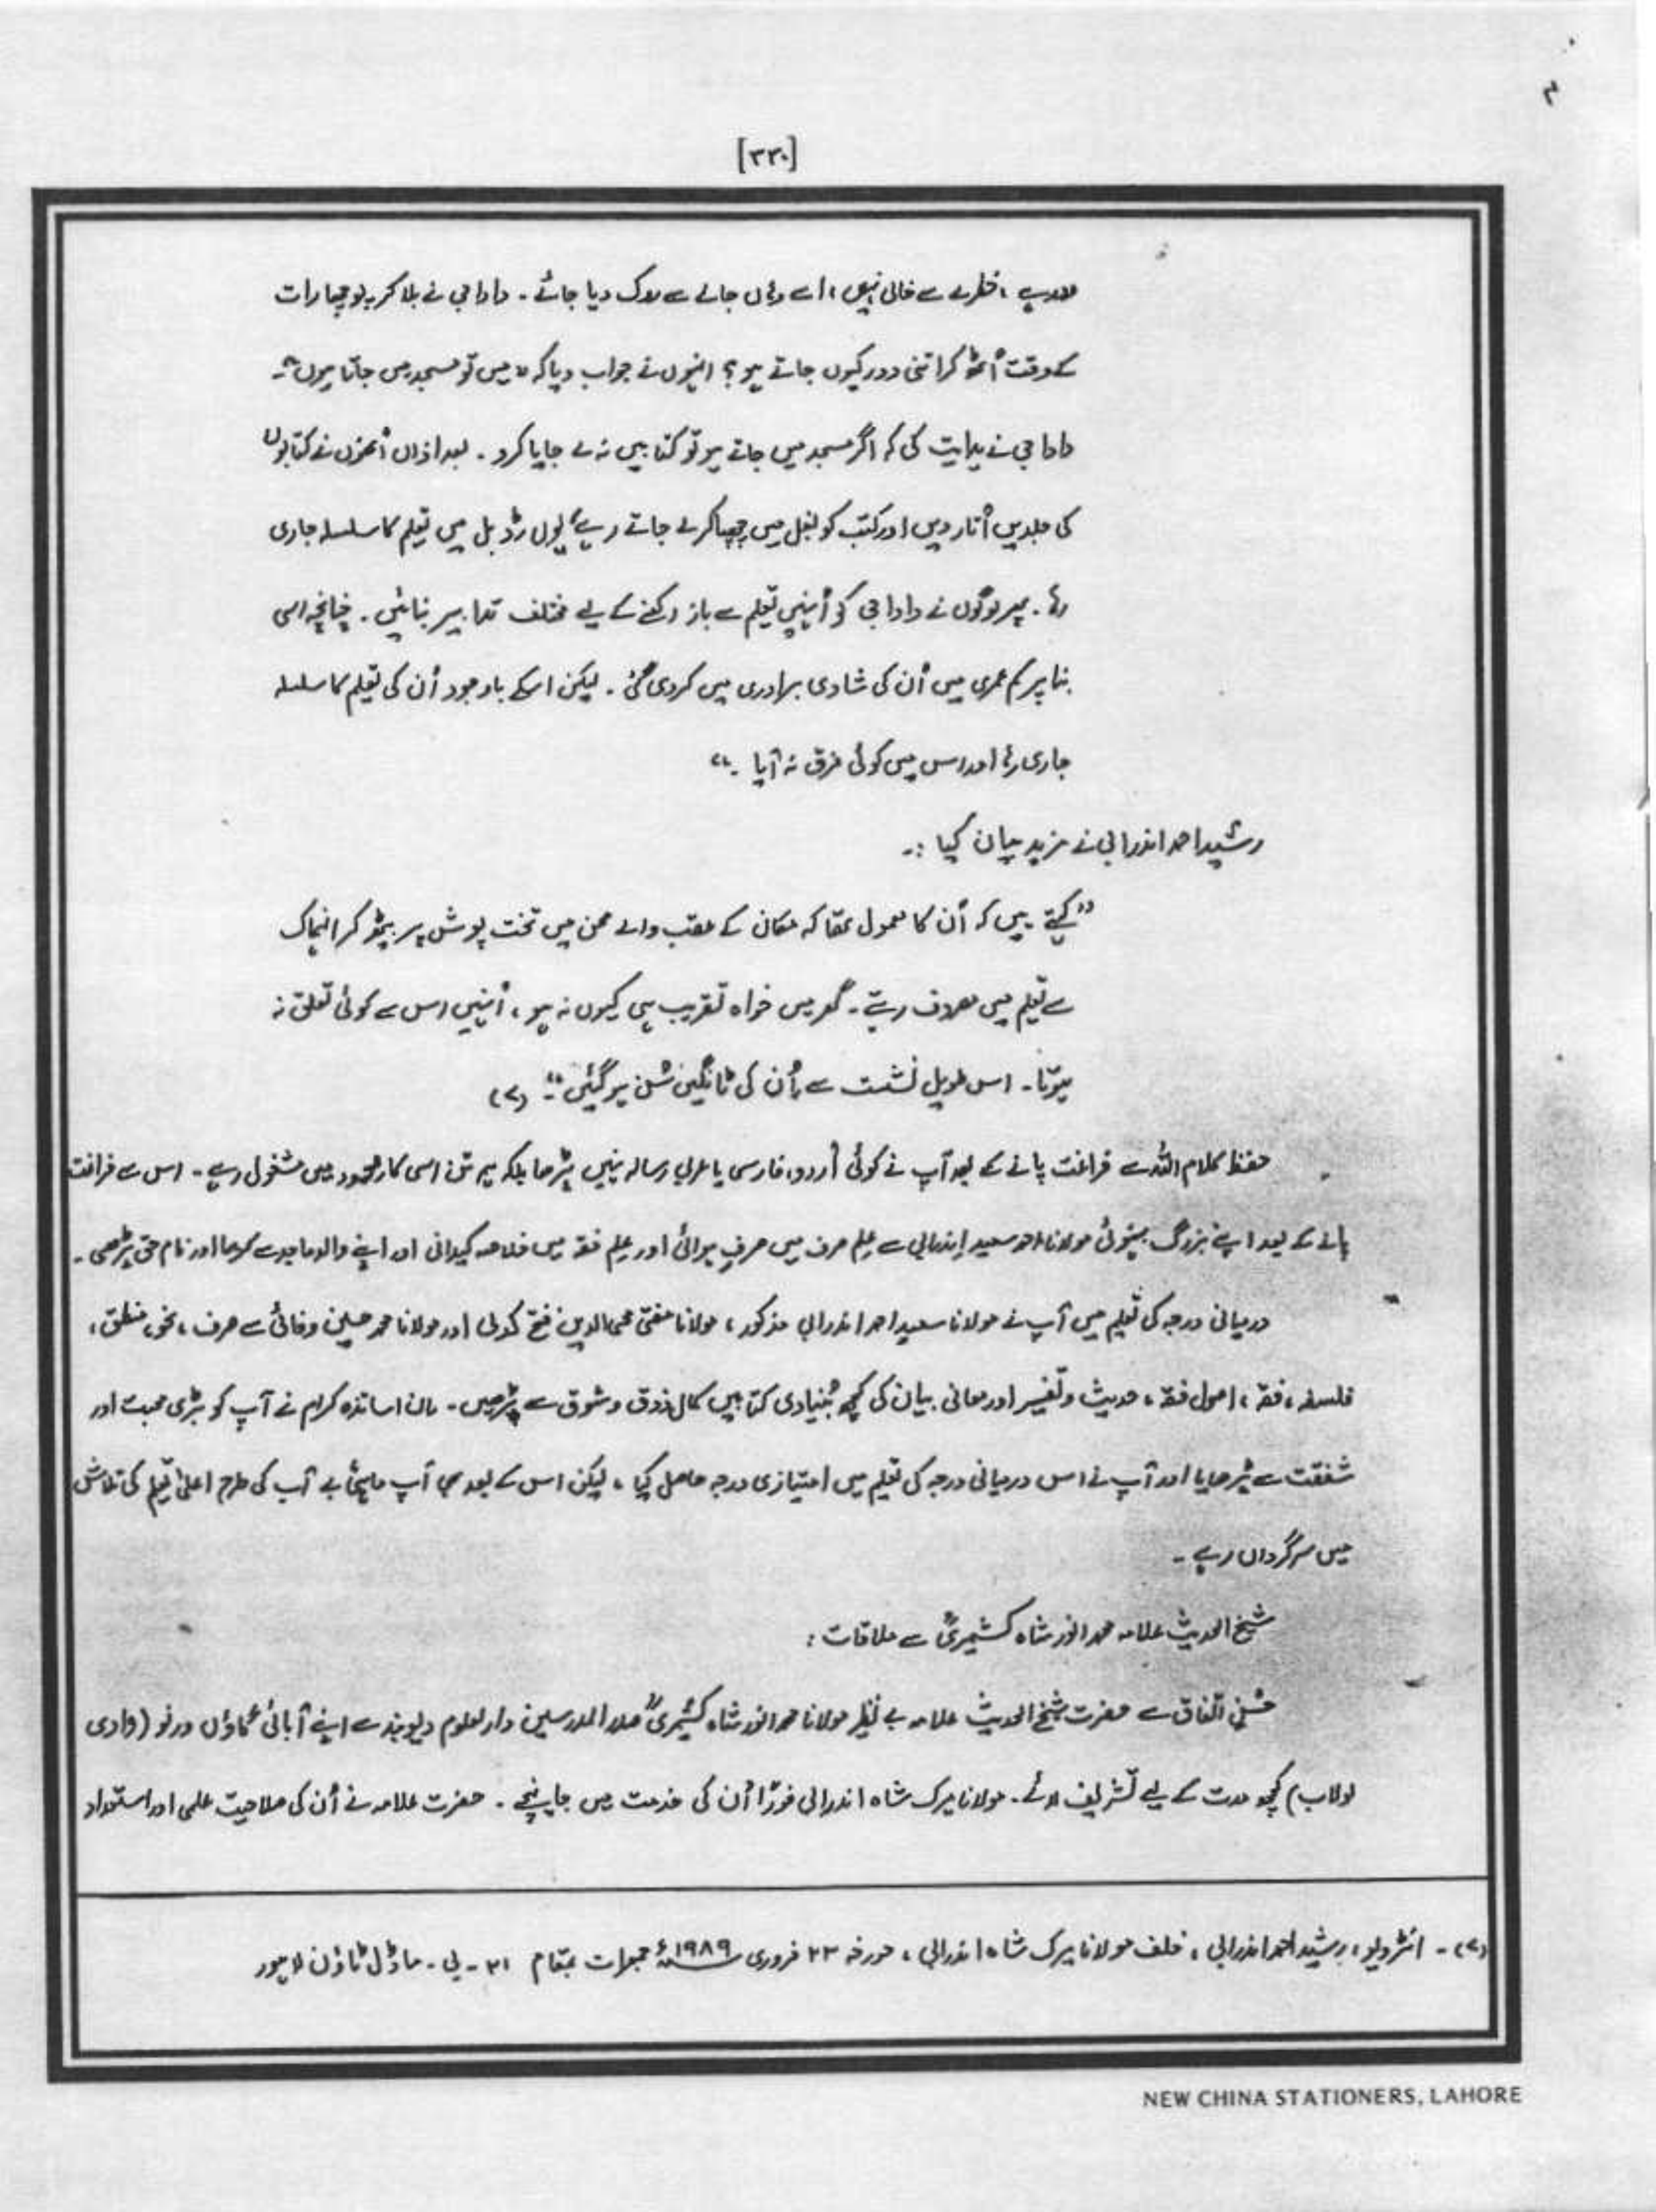 ۳
[۳۳۰]
خطرے سے خالی نہیں، اسے وہاں جانے سے روک دیا جائے۔ دادا جی نے بلا کر پوچھا رات
کے وقت اُٹھ کر اتنی دور کیوں جاتے ہو؟ انہوں نے جواب دیا کہ "میں تو مسجد میں جاتا ہوں"۔
دادا جی نے ہدایت کی کہ اگر مسجد میں جاتے ہو تو کتابیں نہ لے جایا کرو۔ بعد ازاں اُنھوں نے کتابوں
کی جلدیں اُتار دیں اور کتب کو بغل میں چھپا کر لے جاتے رہے یوں رڈ بل میں تعلیم کا سلسلہ جاری
رہا۔ پھر لوگوں نے دادا جی کو اُنہیں تعلیم سے باز رکھنے کے لیے مختلف تدابیر بتائیں۔ چنانچہ اسی
بنا پر کم عمری میں اُن کی شادی برادری میں کردی گئی۔ لیکن اسکے باوجود اُن کی تعلیم کا سلسلہ
جاری رہا اور اس میں کوئی فرق نہ آیا۔"
رشید احمد اندرابی نے مزید بیان کیا :۔
"کہتے ہیں کہ اُن کا معمول تھا کہ مکان کے عقب والے صحن میں تخت پوش پر بیٹھ کر انہماک
سے تعلیم میں مصروف رہتے۔ گھر میں خواہ تقریب ہی کیوں نہ ہو، اُنہیں اس سے کوئی تعلق نہ
ہوتا۔ اس طویل نشست سے اُن کی ٹانگیں شل ہو گئیں"۔ (۲)
حفظ کلام اللہ سے فراغت پانے کے بعد آپ نے کوئی اُردو، فارسی یا عربی رسالہ نہیں پڑھا بلکہ ہمہ تن اسی کار محمود میں مشغول رہے۔ اس سے فراغت
پانے کے بعد اپنے بزرگ بہنوئی مولانا احمد سعید اندرابی سے علم صرف میں صرفِ ہوائی اور علم فقہ میں خلاصہ کیدانی اور اپنے والد ماجد سے کریما اور نام حق پڑھی۔
درمیانی درجہ کی تعلیم میں آپ نے مولانا سعید احمد اندرابی مذکور، مولانا مفتی محی الدین فتح کدلی اور مولانا محمد حسین وفائی سے صرف، نحو، منطق،
فلسفہ، فقہ، اصول فقہ، حدیث و تفسیر اور معانی بیان کی کچھ بنیادی کتابیں کمال ذوق و شوق سے پڑھیں۔ ان اساتذہ کرام نے آپ کو بڑی محبت اور
شفقت سے پڑھایا اور آپ نے اس درمیانی درجہ کی تعلیم میں امتیازی درجہ حاصل کیا، لیکن اس کے بعد بھی آپ ماہئ بے آب کی طرح اعلیٰ تعلیم کی تلاش
میں سرگرداں رہے۔
شیخ الحدیث علامہ محمد انور شاہ کشمیریؒ سے ملاقات:
حُسنِ اتفاق سے حضرت شیخ الحدیث علامہ بے نظیر مولانا محمد انور شاہ کشمیریؒ صدر المدرسین دارالعلوم دیوبند سے اپنے آبائی گاؤں ورنو (وادی
لولاب) کچھ مدت کے لیے تشریف لائے۔ مولانا میرک شاہ اندرابی فوراً اُن کی خدمت میں جا پہنچے۔ حضرت علامہ نے اُن کی صلاحیت علمی اور استعداد
(۲)۔ انٹرویو، رشید احمد اندرابی، خلف مولانا میرک شاہ اندرابی، مورخہ ۲۳ فروری ۱۹۸۹ء جمعرات بمقام ۳۱۔بی۔ ماڈل ٹاؤن لاہور
NEW CHINA STATIONERS, LAHORE